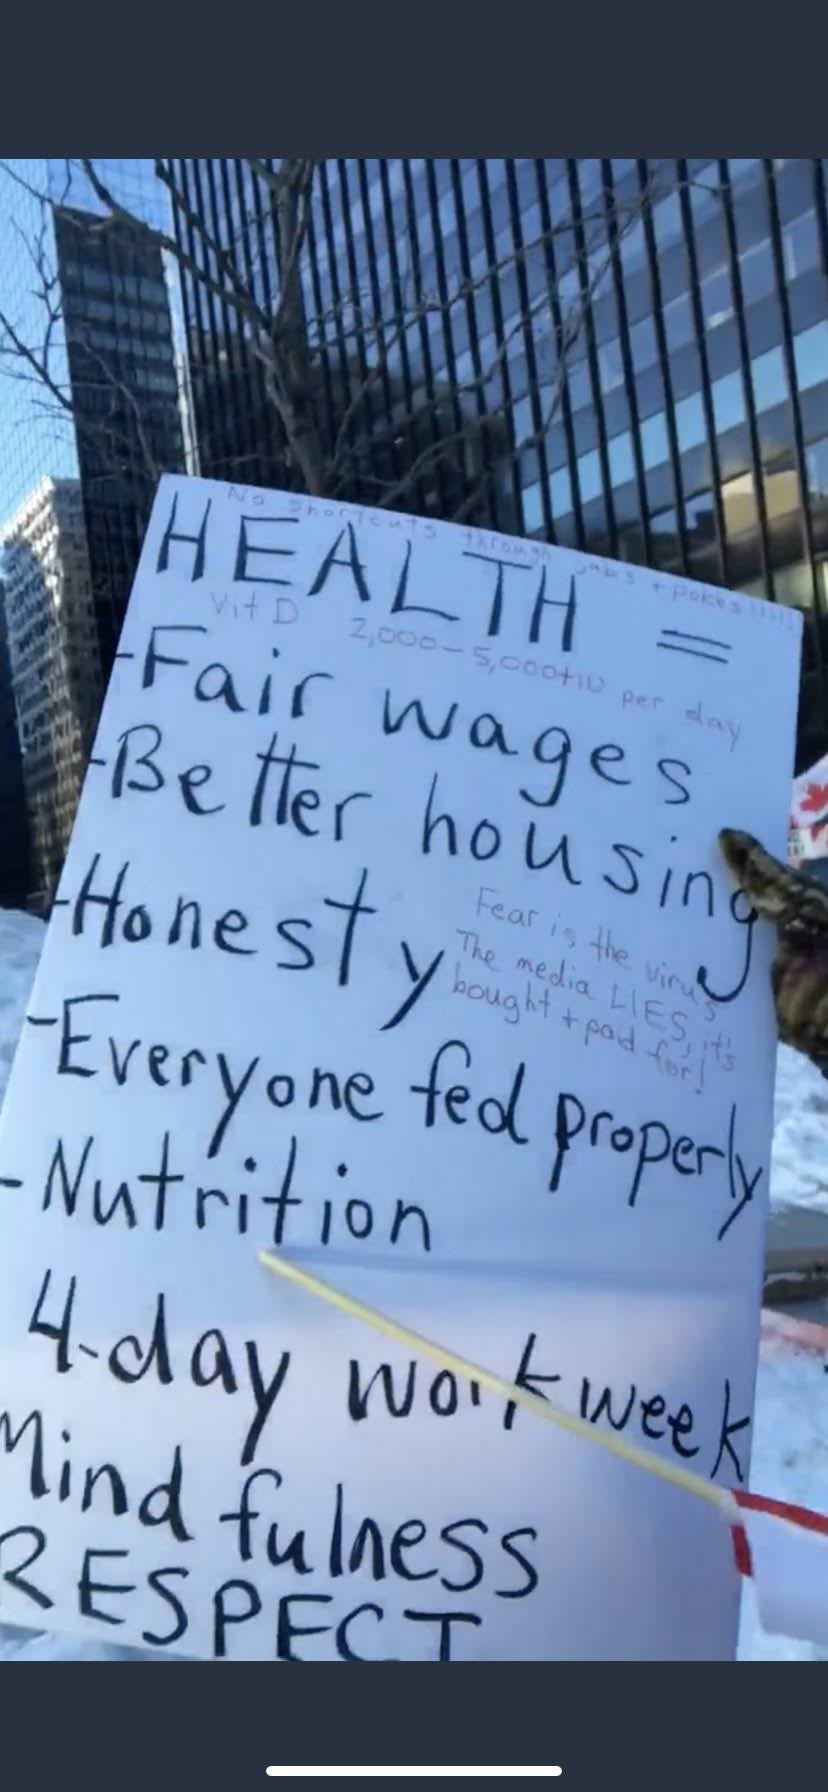 No shortcuts through jabs + pokes !!!!!
HEALTH =
Vit D 2,000-5,000+IU per day
-Fair wages
-Better housing
-Honesty
Fear is the virus
The media LIES, it's
bought + paid for!
-Everyone fed properly
-Nutrition
4-day work week
Mindfulness
RESPECT